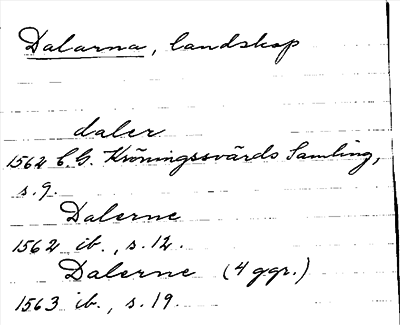 Dalarna, landskap
daler
1562 C.G. Kröningssvärds Samling,
s.9.
Dalerne
1562 ib., s.12.
Dalerne (4 ggr.)
1563 ib., s.19.